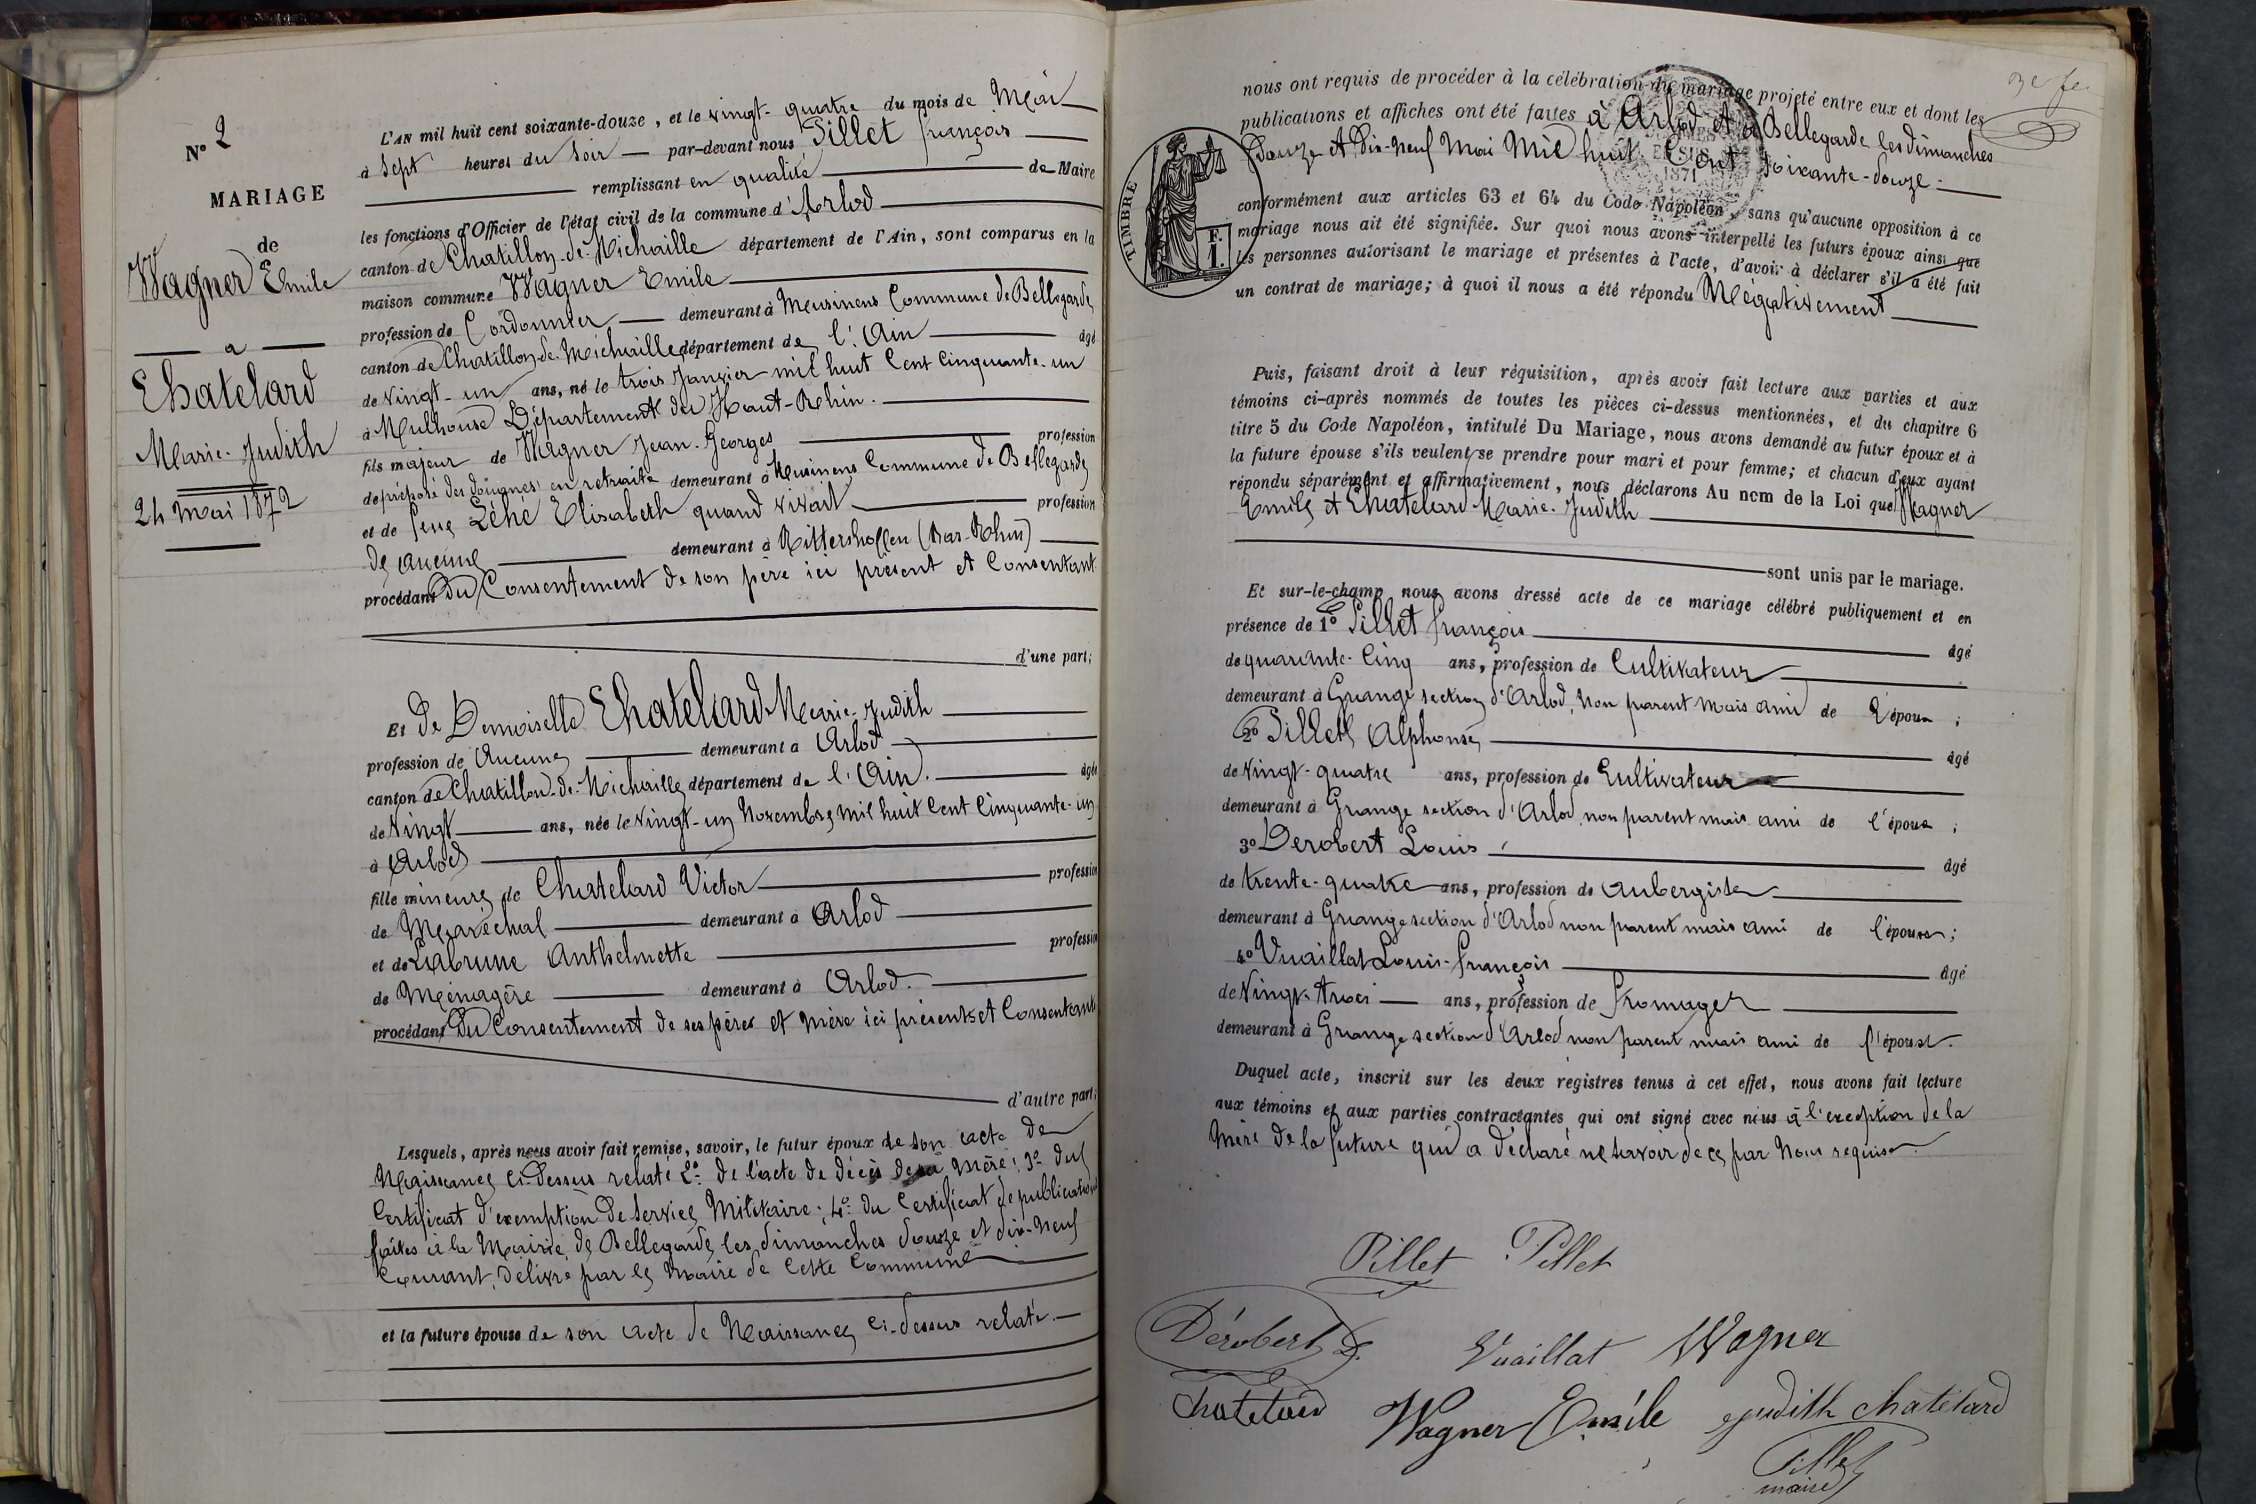 N° 2
MARIAGE
de
Wagner Emile
a
Chatelard
Marie-Judith
24 mai 1872
L'AN mil huit cent soixante-douze, et le vingt-quatre du mois de Mai
à Sept heures du Soir par-devant nous Pillet françois
remplissant en qualité de Maire
les fonctions d'Officier de l'état civil de la commune d'Arlod
canton de Chatillon-de-Michaille département de l'Ain, sont comparus en la
maison commune Wagner Emile
profession de Cordonnier demeurant à Musinens Commune de Bellegarde
canton de Chatillon-de-Michaille département de l'Ain âgé
de Vingt-un ans, né le trois Janvier mil huit Cent Cinquante-un
à Mulhouse Département du Haut-Rhin.
fils majeur de Wagner Jean-Georges profession
de préposé des douanes en retraite demeurant à Musinens Commune de Bellegarde
et de feue Léhé Elisabeth quand vivait profession
de aucune demeurant à Rittershoffen (Bas-Rhin)
procédant Du Consentement de son père ici présent et Consentant
d'une part;
Et De Demoiselle Chatelard Marie-Judith
profession de Aucune demeurant à Arlod
canton de Chatillon-de-Michaille département de l'Ain. âgée
de Vingt ans, née le Vingt-un Novembre mil huit Cent Cinquante-un
à Arlod
fille mineure de Chatelard Victor profession
de Maréchal demeurant à Arlod
et de Labrune Anthelmette profession
de Ménagère demeurant à Arlod.
procédant Du Consentement de ses pères et mère ici présents et Consentants
d'autre part;
Lesquels, après nous avoir fait remise, savoir, le futur époux de son acte de
Naissance Ci-Dessus relaté 2° de l'acte de décès de sa mère; 3° du
Certificat d'exemption De Service Militaire; 4° du Certificat de publications
faites à la Mairie de Bellegarde les dimanches douze et dix-neuf
Courant, délivré par le Maire de Cette Commune
et la future épouse de son acte de Naissance Ci-dessus relaté.
nous ont requis de procéder à la célébration du mariage projeté entre eux et dont les
publications et affiches ont été faites à Arlod et à Bellegarde les dimanches
Douze et Dix-neuf Mai Mil huit Cent Soixante-douze
TIMBRE
F.
1871
conformément aux articles 63 et 64 du Code Napoléon, sans qu'aucune opposition à ce
mariage nous ait été signifiée. Sur quoi nous avons interpellé les futurs époux ainsi que
les personnes autorisant le mariage et présentes à l'acte, d'avoir à déclarer s'il a été fait
un contrat de mariage; à quoi il nous a été répondu Négativement
Puis, faisant droit à leur réquisition, après avoir fait lecture aux parties et aux
témoins ci-après nommés de toutes les pièces ci-dessus mentionnées, et du chapitre 6
titre 5 du Code Napoléon, intitulé Du Mariage, nous avons demandé au futur époux et à
la future épouse s'ils veulent se prendre pour mari et pour femme; et chacun d'eux ayant
répondu séparément et affirmativement, nous déclarons Au nom de la Loi que Wagner
Emile et Chatelard Marie-Judith
sont unis par le mariage.
Et sur-le-champ nous avons dressé acte de ce mariage célébré publiquement et en
présence de 1° Pillet françois âgé
de quarante-Cinq ans, profession de Cultivateur
demeurant à Grange section d'Arlod, non parent mais ami de l'époux ;
2° Pillet Alphonse âgé
de Vingt-quatre ans, profession de Cultivateur
demeurant à Grange section d'Arlod non parent mais ami de l'époux ;
3° Derobert Louis âgé
de trente-quatre ans, profession de aubergiste
demeurant à Grange section d'Arlod non parent mais ami de l'épouse ;
4° Vuaillat Louis-françois âgé
de Vingt-trois ans, profession de fromager
demeurant à Grange section d'Arlod non parent mais ami de l'épouse.
Duquel acte, inscrit sur les deux registres tenus à cet effet, nous avons fait lecture
aux témoins et aux parties contractantes qui ont signé avec nous à l'exception de la
Mère de la future qui a déclaré ne savoir de ce par Nous requise.
Pillet Pillet
Dérobert L.
Vuaillat Wagner
Chatelard Wagner Emile Judith chatelard
Pillet
maire